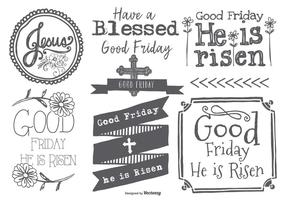 Jesus
Have a
Blessed
Good Friday
GOOD FRIDAY
Good Friday
He is
risen
GOOD
FRIDAY
He is Risen
Good Friday
he is Risen
Good
Friday
He is Risen
Designed by Vecteezy